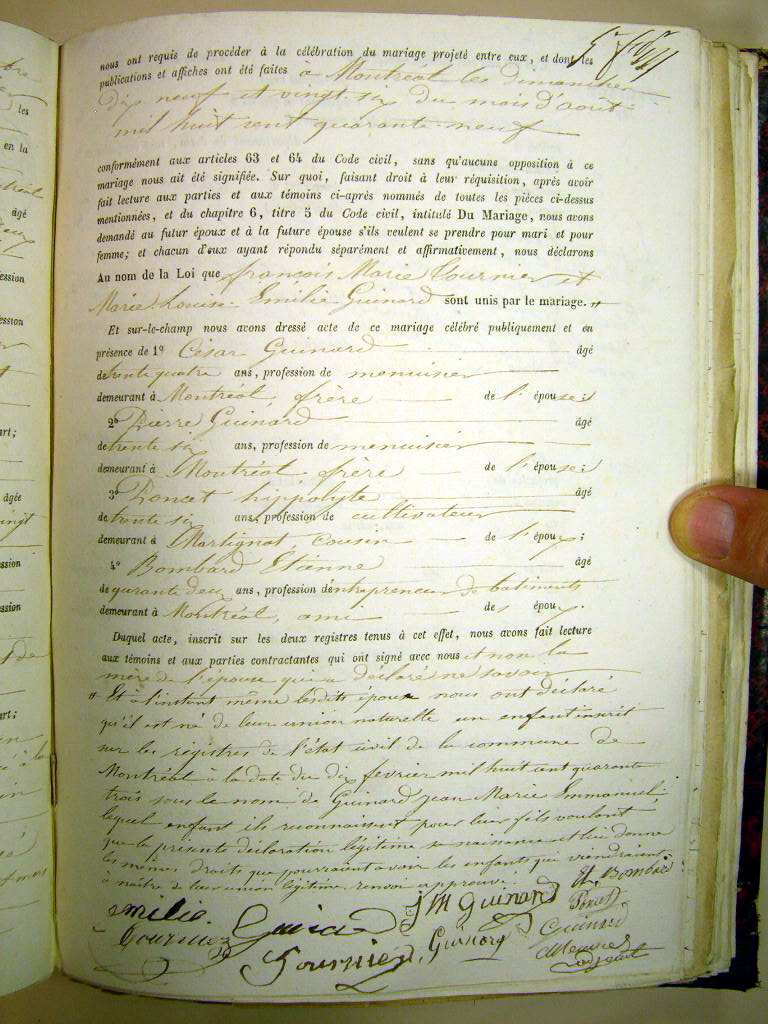 nous ont requis de procéder à la célébration du mariage projeté entre eux, et dont les
publications et affiches ont été faites à Montréal les dimanches
dix neuf et vingt six du mois d'aout
mil huit cent quarante-neuf
conformément aux articles 63 et 64 du Code civil, sans qu'aucune opposition à ce
mariage nous ait été signifiée. Sur quoi, faisant droit à leur réquisition, après avoir
fait lecture aux parties et aux témoins ci-après nommés de toutes les pièces ci-dessus
mentionnées, et du chapitre 6, titre 5 du Code civil, intitulé Du Mariage, nous avons
demandé au futur époux et à la future épouse s'ils veulent se prendre pour mari et pour
femme; et chacun d'eux ayant répondu séparément et affirmativement, nous déclarons
Au nom de la Loi que françois Marie Tournier et
Marie Louise Emilie Guinard sont unis par le mariage.
Et sur-le-champ nous avons dressé acte de ce mariage célébré publiquement et en
présence de 1° César Guinard âgé
de trente quatre ans, profession de menuisier
demeurant à Montréal frère de l' épouse;
2° Pierre Guinard âgé
de trente six ans, profession de menuisier
demeurant à Montréal frère de l' épouse;
3° Poncet hippolyte âgé
de trente six ans, profession de cultivateur
demeurant à Martignat Cousin de l' époux;
4° Bombard Etienne âgé
de quarante deux ans, profession d'entrepreneur de batiments
demeurant à Montréal, ami de s époux.
Duquel acte, inscrit sur les deux registres tenus à cet effet, nous avons fait lecture
aux témoins et aux parties contractantes qui ont signé avec nous et non la
mère de l'épouse qui a déclaré ne savoir
" Et à l'instant même lesdits époux nous ont déclaré
qu'il est né de leur union naturelle un enfant inscrit
sur les registres de l'état civil de la commune de
Montréal à la date du dix février mil huit cent quarante
trois sous le nom de Guinard jean Marie Emmanuel
lequel enfant ils reconnaissent pour leur fils voulant
que la présente déclaration légitime sa naissance et lui donne
les mêmes droits que pourraient avoir les enfants qui viendraient
à naître de leur union légitime. renvoi approuvé.
Et. Bombard
emilie
J M Guinard
Poncet
Tournier
Guinard
Guinard
Guinard
Tournier
adjoint